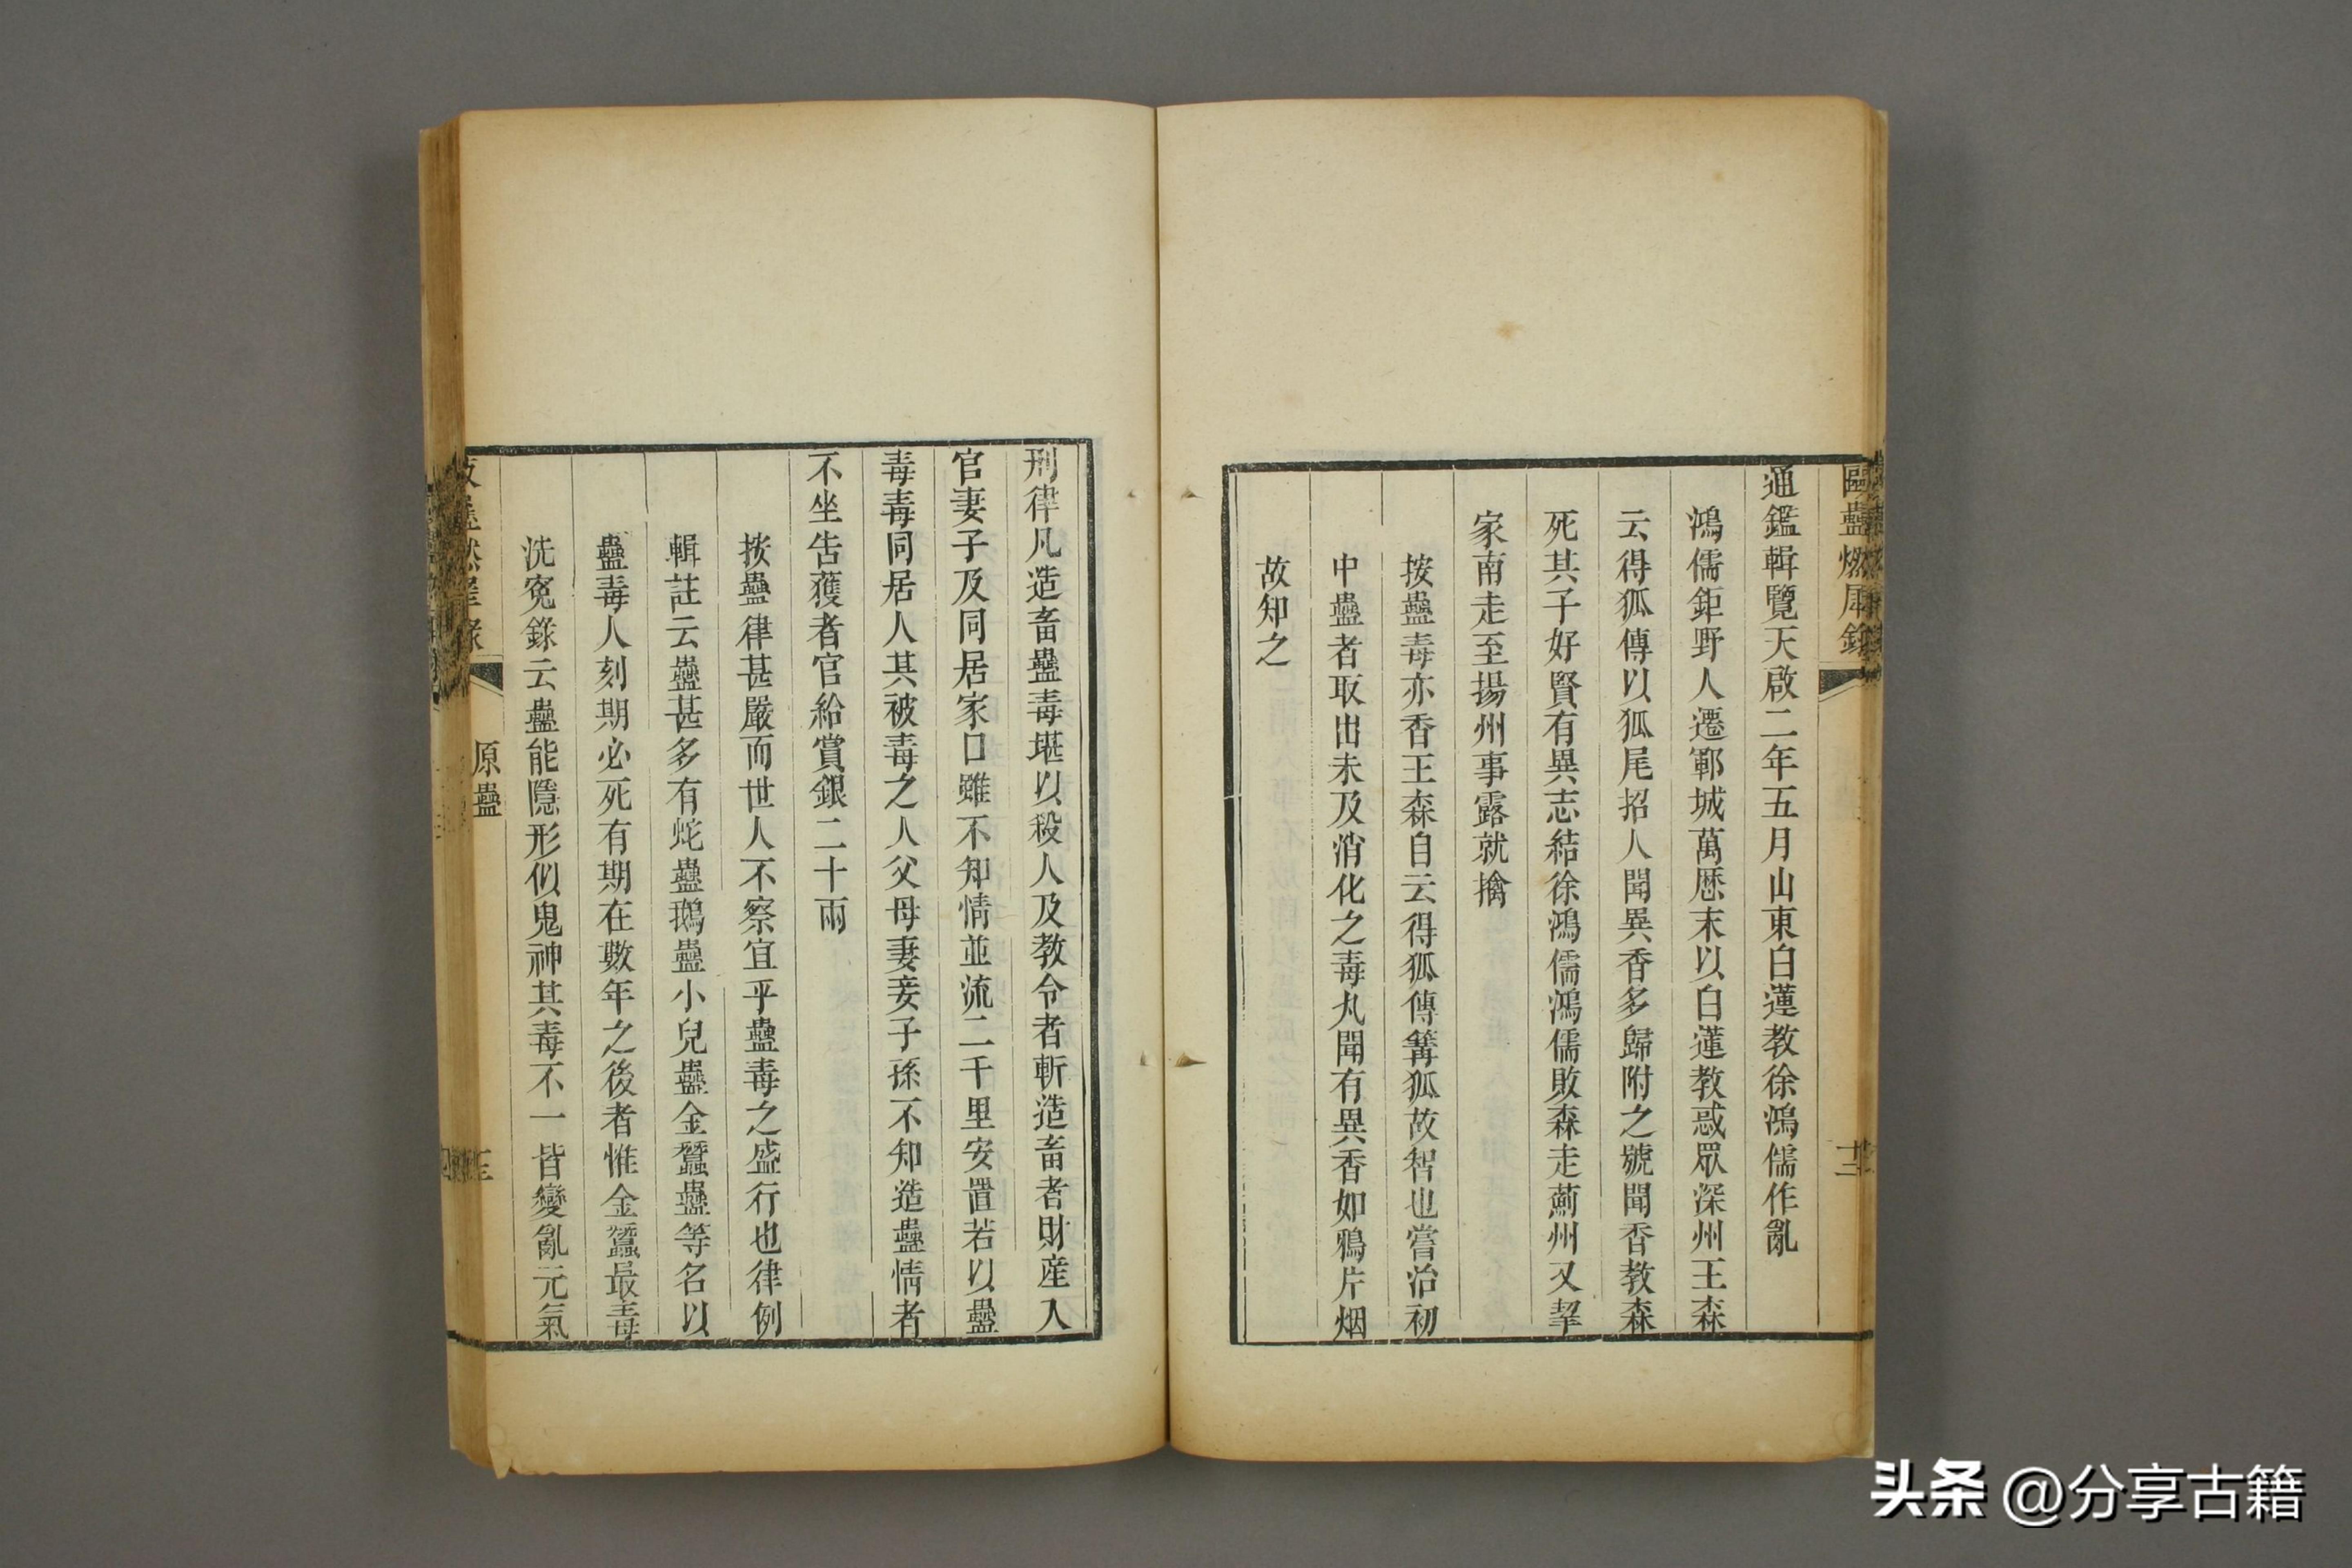 通鑑輯覽天啟二年五月山東白蓮教徐鴻儒作亂
鴻儒鉅野人遷鄆城萬歷末以白蓮教惑眾深州王森
云得狐傳以狐尾招人聞異香多歸附之號聞香教森
死其子好賢有異志結徐鴻儒鴻儒敗森走薊州又挈
家南走至揚州事露就擒
按蠱毒亦香王森自云得狐傳篝狐故智也嘗治初
中蠱者取出未及消化之毒丸聞有異香如鴉片烟
故知之
刑律凡造畜蠱毒堪以殺人及教令者斬造畜者財産入
官妻子及同居家口雖不知情並流二千里安置若以蠱
毒毒同居人其被毒之人父母妻妾子孫不知造蠱情者
不坐告獲者官給賞銀二十兩
按蠱律甚嚴而世人不察宜乎蠱毒之盛行也律例
輯註云蠱甚多有蛇蠱鵝蠱小兒蠱金蠶蠱等名以
蠱毒人刻期必死有期在數年之後者惟金蠶最毒
洗寃錄云蠱能隱形似鬼神其毒不一皆變亂元氣
原蠱
头条 @分享古籍